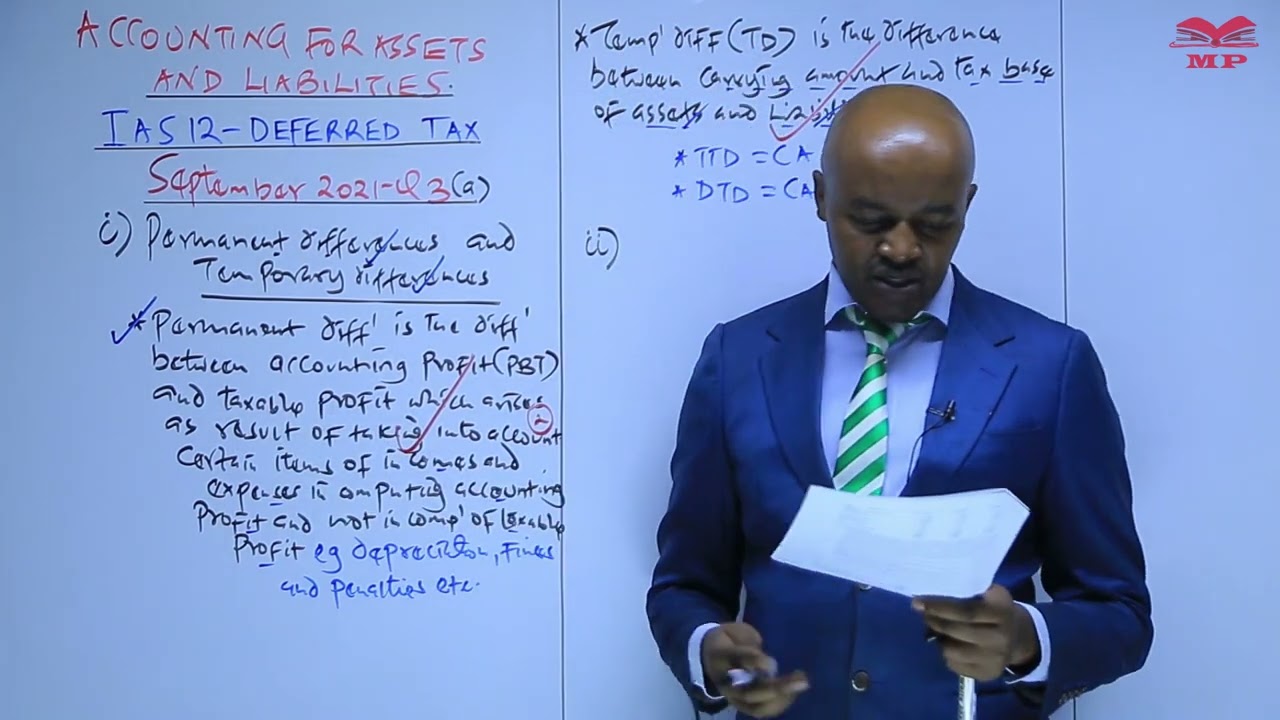 ACCOUNTING FOR ASSETS
AND LIABILITIES.
IAS 12 - DEFERRED TAX
September 2021 - Q3(a)
i) Permanent differences and
Temporary differences
* Permanent diff' is the diff'
between accounting profit (PBT)
and taxable profit which arises
as result of taking into account
2
certain items of incomes and
expenses in computing accounting
Profit and not in comp' of taxable
Profit eg depreciation, Fines
and penalties etc.
* Temp' diff (TD) is the difference
between carrying amount and tax base
of assets and
* TTD = CA
* DTD = CA
ii)
MP